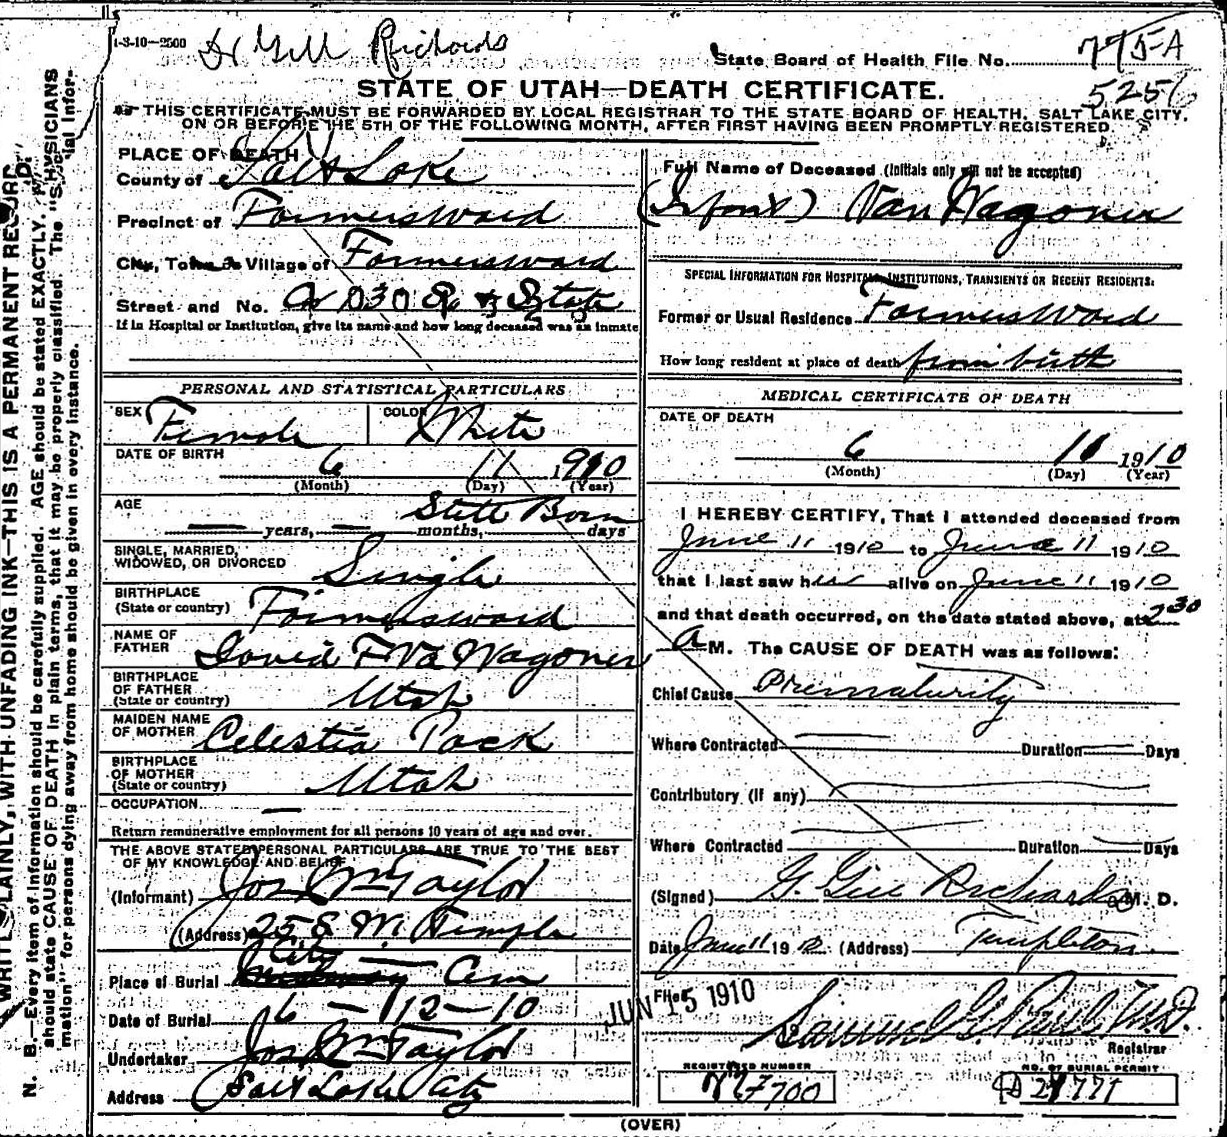 1-3-10—2500
Dr Gill Richards
State Board of Health File No. 775-A
5256
STATE OF UTAH—DEATH CERTIFICATE.
THIS CERTIFICATE MUST BE FORWARDED BY LOCAL REGISTRAR TO THE STATE BOARD OF HEALTH, SALT LAKE CITY,
ON OR BEFORE THE 5TH OF THE FOLLOWING MONTH, AFTER FIRST HAVING BEEN PROMPTLY REGISTERED.
PLACE OF DEATH
County of Salt Lake
Precinct of Farmersward
City, Town or Village of Farmersward
Street and No. State
If in Hospital or Institution, give its name and how long deceased was an inmate
PERSONAL AND STATISTICAL PARTICULARS
SEX Female COLOR White
DATE OF BIRTH
6 11 1910
(Month) (Day) (Year)
AGE Still Born
years, months, days
SINGLE, MARRIED,
WIDOWED, OR DIVORCED Single
BIRTHPLACE
(State or country) Farmersward
NAME OF
FATHER David F Va Wagoner
BIRTHPLACE
OF FATHER
(State or country) Utah
MAIDEN NAME
OF MOTHER Celestia Pack
BIRTHPLACE
OF MOTHER
(State or country) Utah
OCCUPATION
Return remunerative employment for all persons 10 years of age and over.
THE ABOVE STATED PERSONAL PARTICULARS ARE TRUE TO THE BEST
OF MY KNOWLEDGE AND BELIEF
(Informant) Jos Wm Taylor
(Address) 25 S W. Temple
Place of Burial City Cem
Date of Burial 6 - 12 - 10
Undertaker Jos Wm Taylor
Address Salt Lake City
Full Name of Deceased (Initials only will not be accepted)
(Infant) Van Wagoner
SPECIAL INFORMATION FOR HOSPITALS, INSTITUTIONS, TRANSIENTS OR RECENT RESIDENTS:
Former or Usual Residence Farmersward
How long resident at place of death from birth
MEDICAL CERTIFICATE OF DEATH
DATE OF DEATH
6 11 1910
(Month) (Day) (Year)
I HEREBY CERTIFY, That I attended deceased from
June 11 1910 to June 11 1910
that I last saw her alive on June 11 1910
and that death occurred, on the date stated above, at 2 30
A M. The CAUSE OF DEATH was as follows:
Chief Cause Prematurity
Where Contracted Duration Days
Contributory (if any)
Where Contracted Duration Days
(Signed) G. Gill Richards M. D.
Date June 11 1910 (Address) Templeton
Filed JUN 15 1910
Samuel G. Paul M.D.
Registrar
REGISTERED NUMBER
NO. OF BURIAL PERMIT
(OVER)
WRITE PLAINLY, WITH UNFADING INK—THIS IS A PERMANENT RECORD
N. B.—Every item of information should be carefully supplied. AGE should be stated EXACTLY. PHYSICIANS
should state CAUSE OF DEATH in plain terms, that it may be properly classified. The "Special Infor-
mation" for persons dying away from home should be given in every instance.